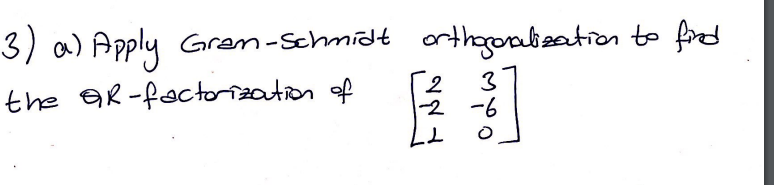 3) a) Apply Gram-Schmidt orthogonalization to find
the QR-factorization of [2 3
-2 -6
1 0]